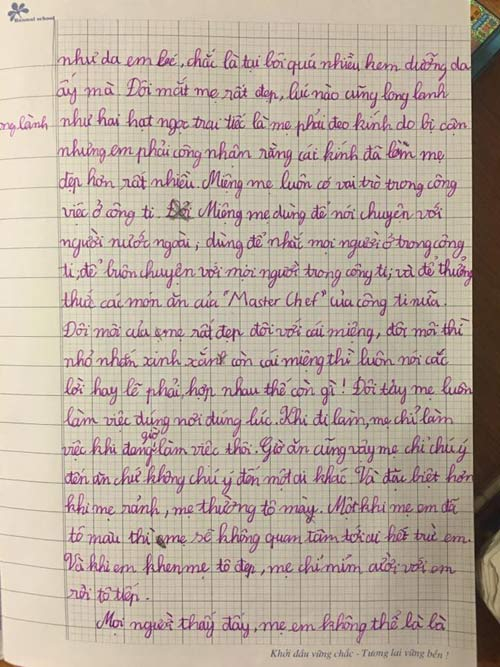 Normal school
như da em bé, chắc là tại bôi quá nhiều kem dưỡng da
ấy mà. Đôi mắt mẹ rất đẹp, lúc nào cũng long lanh
ng lành
như hai hạt ngọc trai tiếc là mẹ phải đeo kính do bị cận
nhưng em phải công nhận rằng cái kính đã làm mẹ
đẹp hơn rất nhiều. Miệng mẹ luôn có vai trò trong công
việc ở công ti. Miệng mẹ dùng để nói chuyện với
người nước ngoài; dùng để nhắc mọi người ở trong công
ti; để buôn chuyện với mọi người trong công ti; và để thưởng
thức các món ăn của "Master Chef" của công ti nữa.
Đôi môi của mẹ rất đẹp đôi với cái miệng, đôi môi thì
nhỏ nhắn xinh xắn còn cái miệng thì luôn nói các
lời hay lẽ phải, hợp nhau thế còn gì! Đôi tay mẹ luôn
làm việc đúng nơi đúng lúc. Khi đi làm, mẹ chỉ làm
việc khi đang giờ làm việc thôi. Giờ ăn cũng vậy mẹ chỉ chú ý
đến ăn chứ không chú ý đến một cái khác. Và đặc biệt hơn
khi mẹ rảnh, mẹ thường tô mày. Một khi mẹ em đã
tô màu thì mẹ sẽ không quan tâm tới ai hết trừ em.
Và khi em khen mẹ tô đẹp, mẹ chỉ mỉm cười với em
rồi tô tiếp.
Mọi người thấy đấy, mẹ em không thể là là
Khởi đầu vững chắc - Tương lai vững bền !